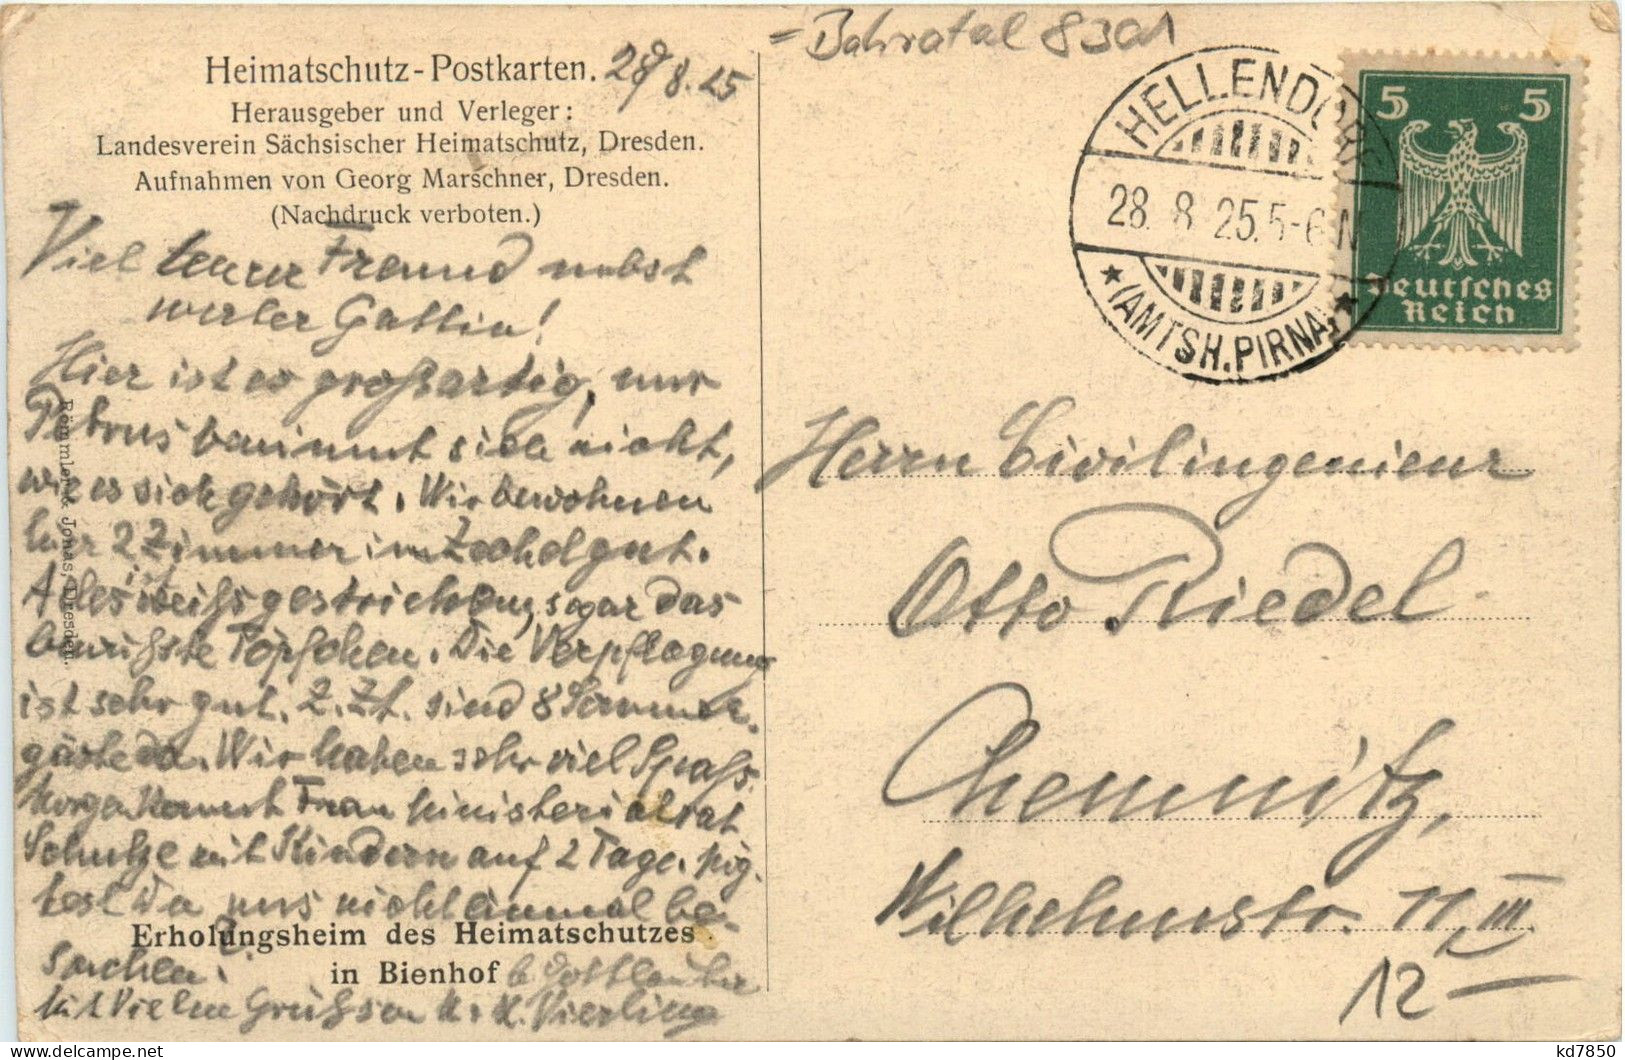 = Bahratal 8301
Heimatschutz-Postkarten. 28/8.25
Herausgeber und Verleger:
Landesverein Sächsischer Heimatschutz, Dresden.
Aufnahmen von Georg Marschner, Dresden.
(Nachdruck verboten.)
Viel teurer Freund nebst
werter Gattin!
Hier ist es großartig, nur
Petrus benimmt sich nicht,
wie es sich gehört. Wir bewohnen
hier 2 Zimmer im
Alles ist weiß gestrichen, sogar das
Töpfchen. Die Verpflegung
ist sehr gut. Z. Zt. sind 8 Sommer-
gäste da. Wir haben sehr viel Spaß.
Morgen kommt Frau Ministerialrat
Schulze mit Kindern auf 2 Tage.
Du uns nicht einmal be-
suchen.
Erholungsheim des Heimatschutzes
in Bienhof b. Gottleuba
Mit vielen Grüßen
Römmler & Jonas, Dresden.
HELLENDORF
28. 8. 25. 5-6 N
★ (AMTSH. PIRNA) ★
5 5
Deutsches
Reich
Herrn Civilingenieur
Otto Riedel
Chemnitz,
Wilhelmstr. 11, III.
12
kd7850